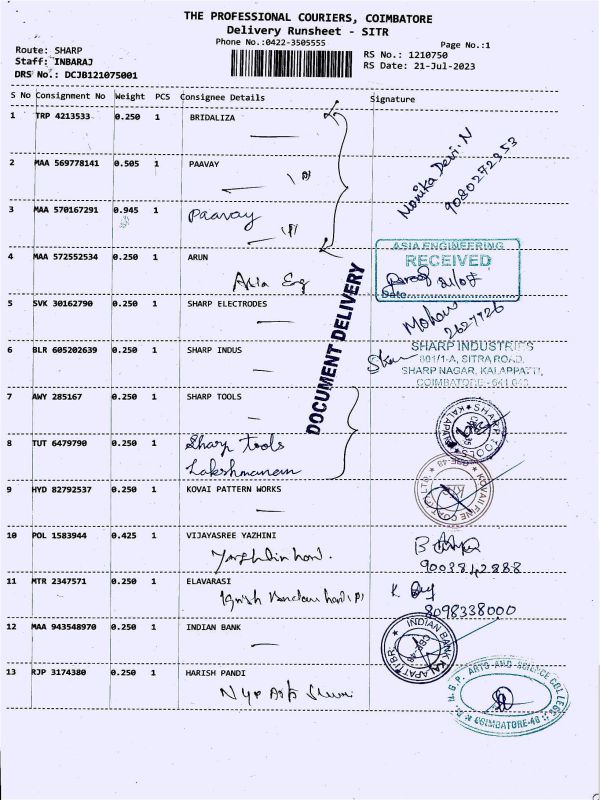 THE PROFESSIONAL COURIERS, COIMBATORE
Delivery Runsheet - SITR
Phone No.:0422-3505555
Page No.:1
Route: SHARP
Staff: INBARAJ
DRS No.: DCJB121075001
RS No.: 1210750
RS Date: 21-Jul-2023
S No Consignment No Weight PCS Consignee Details Signature
1 TRP 4213533 0.250 1 BRIDALIZA
2 MAA 569778141 0.505 1 PAAVAY
Monika Devi. N
9080272353
3 MAA 570167291 0.945 1 Paavay
4 MAA 572552534 0.250 1 ARUN
Asia Eng
ASIA ENGINEERING
RECEIVED
Date
5 SVK 30162790 0.250 1 SHARP ELECTRODES
Mohan
2627726
6 BLR 605202639 0.250 1 SHARP INDUS
SHARP INDUSTRIES
801/1-A, SITRA ROAD,
SHARP NAGAR, KALAPPATTI,
COIMBATORE - 641 048
DOCUMENT DELIVERY
7 AWY 285167 0.250 1 SHARP TOOLS
SHARP TOOLS
8 TUT 6479790 0.250 1 Sharp tools
Lakshmanan
9 HYD 82792537 0.250 1 KOVAI PATTERN WORKS
10 POL 1583944 0.425 1 VIJAYASREE YAZHINI
9003842888
11 MTR 2347571 0.250 1 ELAVARASI
8098338000
12 MAA 943548970 0.250 1 INDIAN BANK
INDIAN BANK
13 RJP 3174380 0.250 1 HARISH PANDI
N.G.P. ARTS AND SCIENCE COLLEGE
COIMBATORE-48